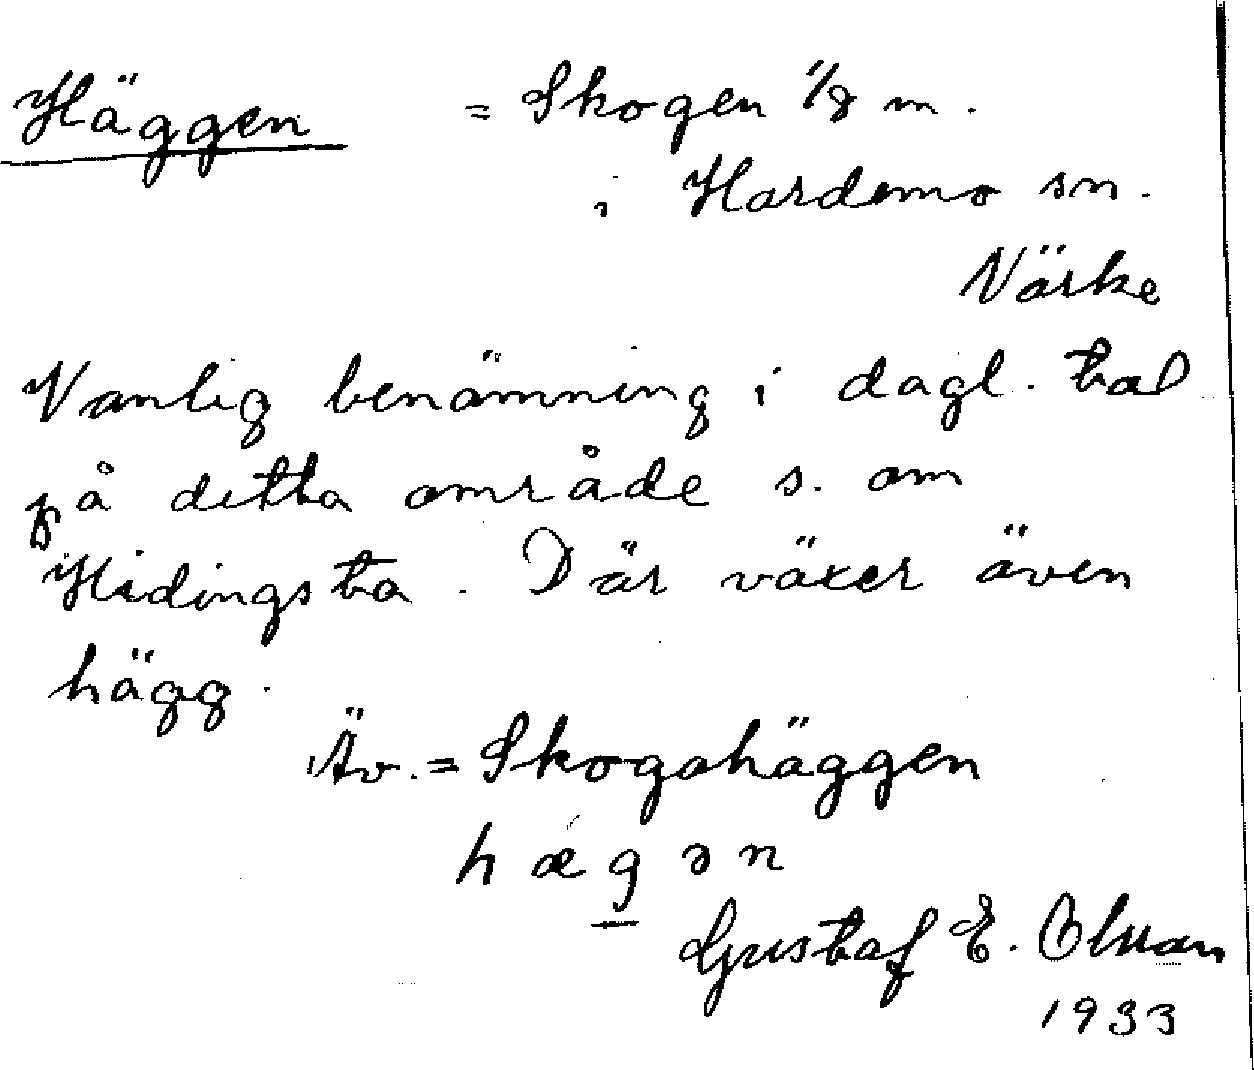 Häggen = Skogen 1/8 m.
i Hardemo sn.
Närke
Vanlig benämning i dagl. tal
på detta område s. om
Hidingsta. Där växer även
hägg.
Äv. = Skogahäggen
hægən
Gustaf E.
1933